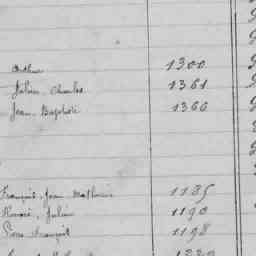 Arthur 1300
Julien, Charles 1361
Jean, Baptiste 1366
François, Jean Mathurin 1185
Honoré, Julien 1190
Pierre François 1198